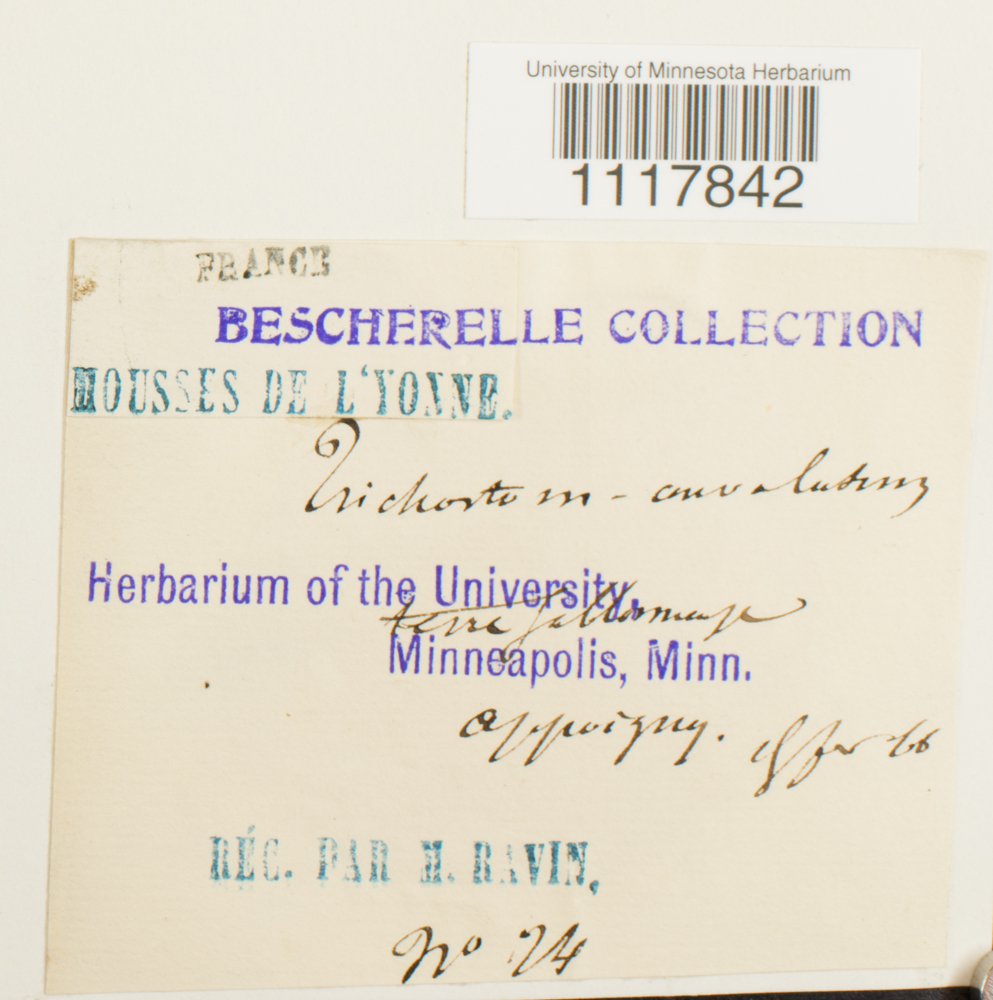 University of Minnesota Herbarium
1117842
FRANCE
BESCHERELLE COLLECTION
MOUSSES DE L'YONNE.
Trichostom-convolutum
Herbarium of the University,
terre
Minneapolis, Minn.
appoigny.
RÉC. PAR M. RAVIN,
No 74